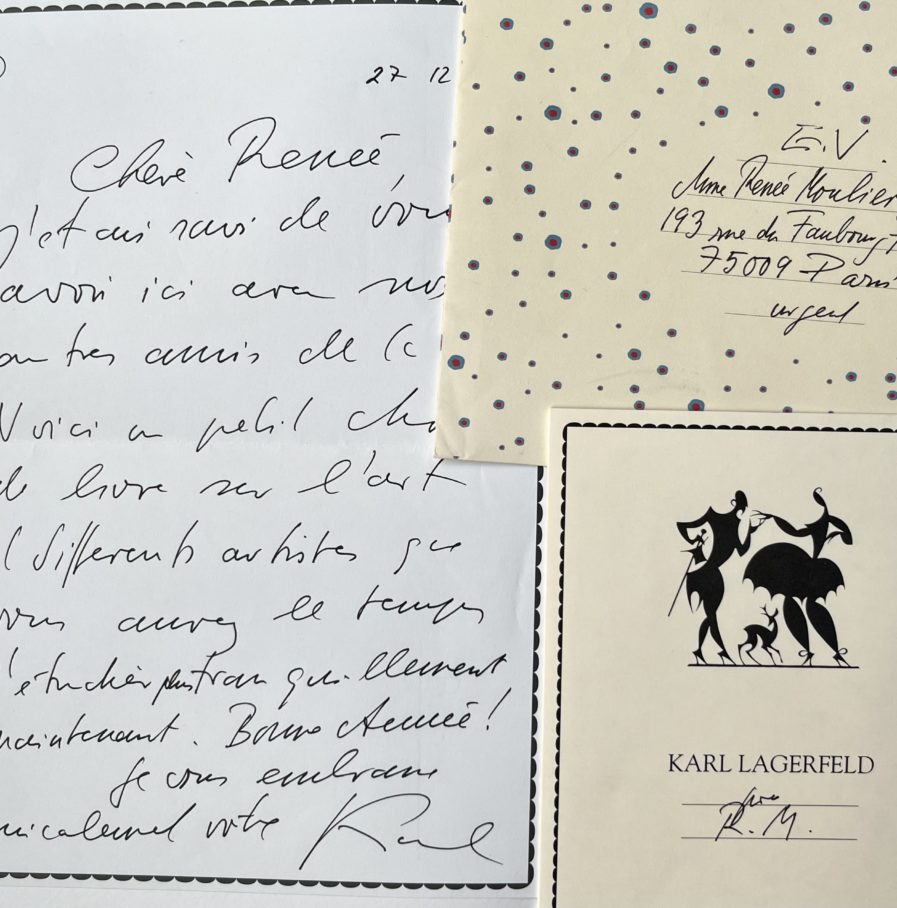 27 12
Chère Renée,
j'étais ravi de vous
avoir ici avec nos
autres amis de la
Voici un petit
de livre sur l'art
différents artistes que
vous aurez le temps
d'étudier plus tranquillement
maintenant. Bonne Année!
Je vous embrasse
amicalement votre Karl
E.V.
Mme Renée Moulier
193 rue du Faubourg
75009 Paris
urgent
KARL LAGERFELD
pour
R. M.